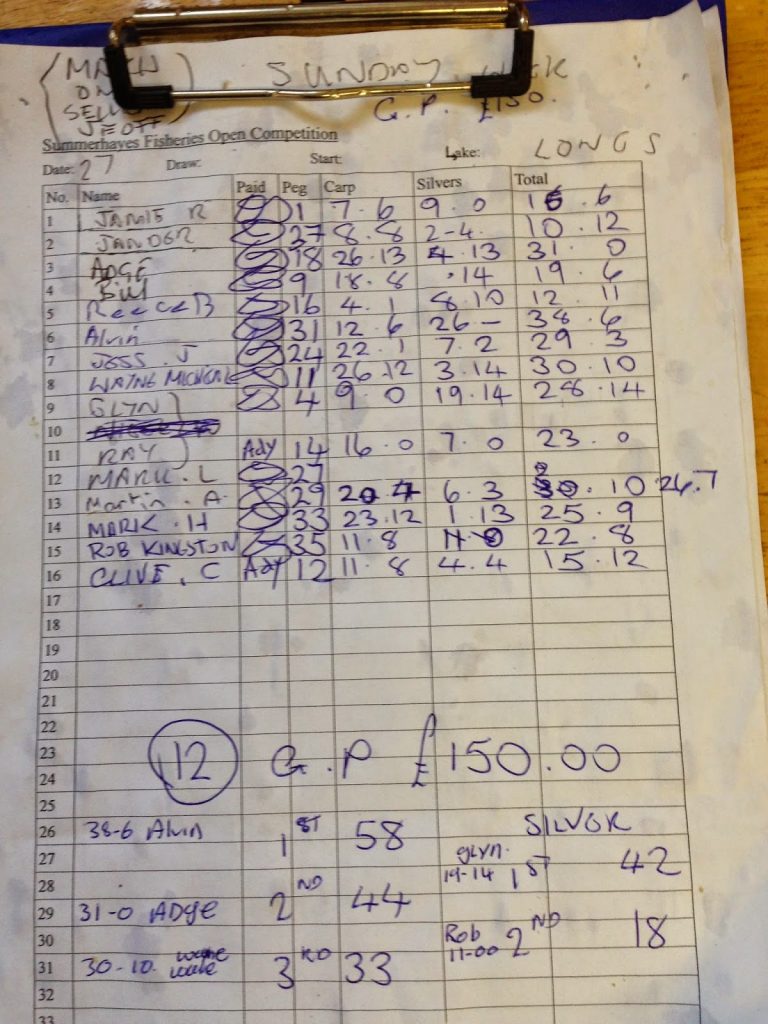 MATCH SUNDAY
ON
SELL G.P. £150.
JEOFF
Summerhayes Fisheries Open Competition
Date: 27 Draw: Start: Lake: LONGS
No. Name Paid Peg Carp Silvers Total
1 JAMIE R 1 7.6 9.0 16.6
2 JANDER 37 8.8 2-4. 10.12
3 ADGE 18 26.13 4.13 31.0
4 Bill 9 18.8 .14 19.6
5 Reece B 16 4.1 8.10 12.11
6 Alvin 31 12.6 26- 38.6
7 JESS.J 24 22.1 7.2 29.3
8 WAYNE MICHEAL 11 26.12 3.14 30.10
9 GLYN 4 9.0 19.14 28.14
10
11 RAY Ady 14 16.0 7.0 23.0
12 MARK.L 27
13 Martin.A. 29 20 4 6.3 .10 26.7
14 MARK.H 33 23.12 1.13 25.9
15 ROB KINGSTON 35 11.8 11.0 22.8
16 CLIVE.C Ady 12 11.8 4.4 15.12
17
18
19
20
21
22
23 12 G.P £150.00
24
25
26 38-6 Alvin 1ST 58 SILVER
27 GLYN. 19-14 1ST 42
28
29 31-0 ADGE 2ND 44
30 Rob 11-00 2ND 18
31 30-10. wayne 3RD 33
32
33